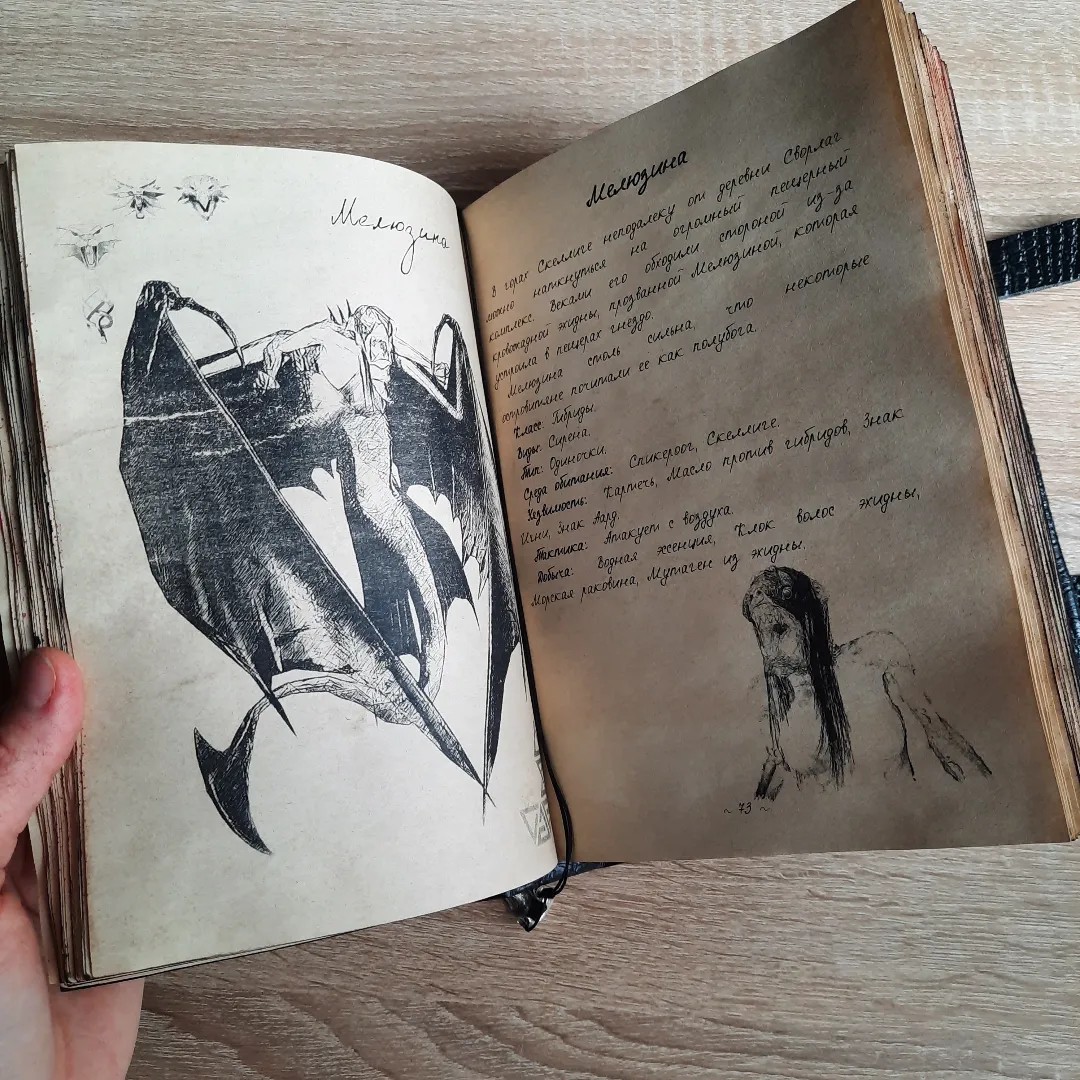 Мелюзина
Мелюзина
В горах Скеллиге неподалеку от деревни Сворлаг
можно наткнуться на огромный пещерный
комплекс. Веками его обходили стороной из-за
кровожадной эхидны, прозванной Мелюзиной, которая
устроила в пещерах гнездо.
Мелюзина столь сильна, что некоторые
островитяне почитали её как полубога.
Класс: Гибриды.
Виды: Сирена.
Тип: Одиночки.
Среда обитания: Спикероог, Скеллиге.
Уязвимость: Картечь, Масло против гибридов, Знак
Игни, Знак Аард.
Тактика: Атакует с воздуха.
Добыча: Водная эссенция, Клок волос эхидны,
Морская раковина, Мутаген из эхидны.
~ 73 ~